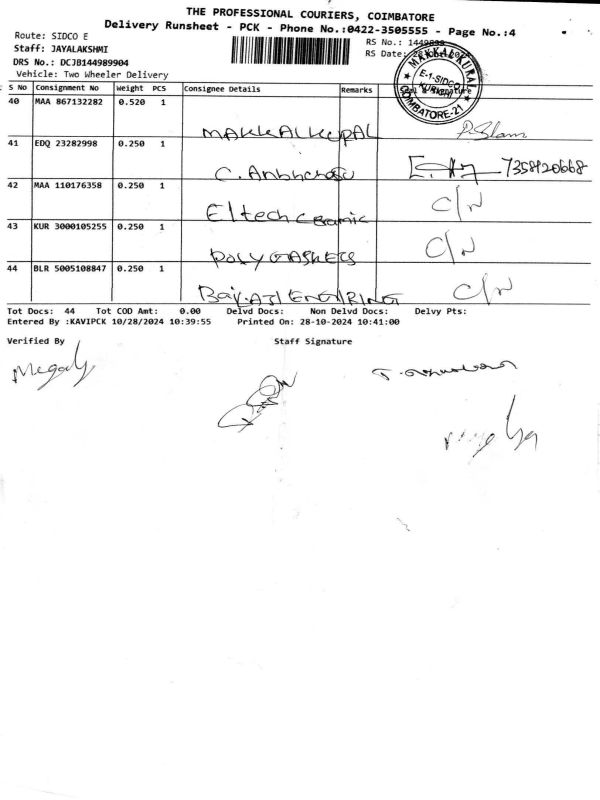 THE PROFESSIONAL COURIERS, COIMBATORE
Delivery Runsheet - PCK - Phone No.:0422-3505555 - Page No.:4
Route: SIDCO E
RS No.:
Staff: JAYALAKSHMI
RS Date:
DRS No.: DCJB144989904
Vehicle: Two Wheeler Delivery
MAKKAL KURAL
E-1-SIDCO
KURICHI
COIMBATORE-21
S No Consignment No Weight PCS Consignee Details Remarks
40 MAA 867132282 0.520 1
MAKKALKURAL
41 EDQ 23282998 0.250 1
C. 7358920668
42 MAA 110176358 0.250 1
Eltech ceramic C/N
43 KUR 3000105255 0.250 1
POLYGASKETS C/N
44 BLR 5005108847 0.250 1
C/N
Tot Docs: 44 Tot COD Amt: 0.00 Delvd Docs: Non Delvd Docs: Delvy Pts:
Entered By :KAVIPCK 10/28/2024 10:39:55 Printed On: 28-10-2024 10:41:00
Verified By Staff Signature